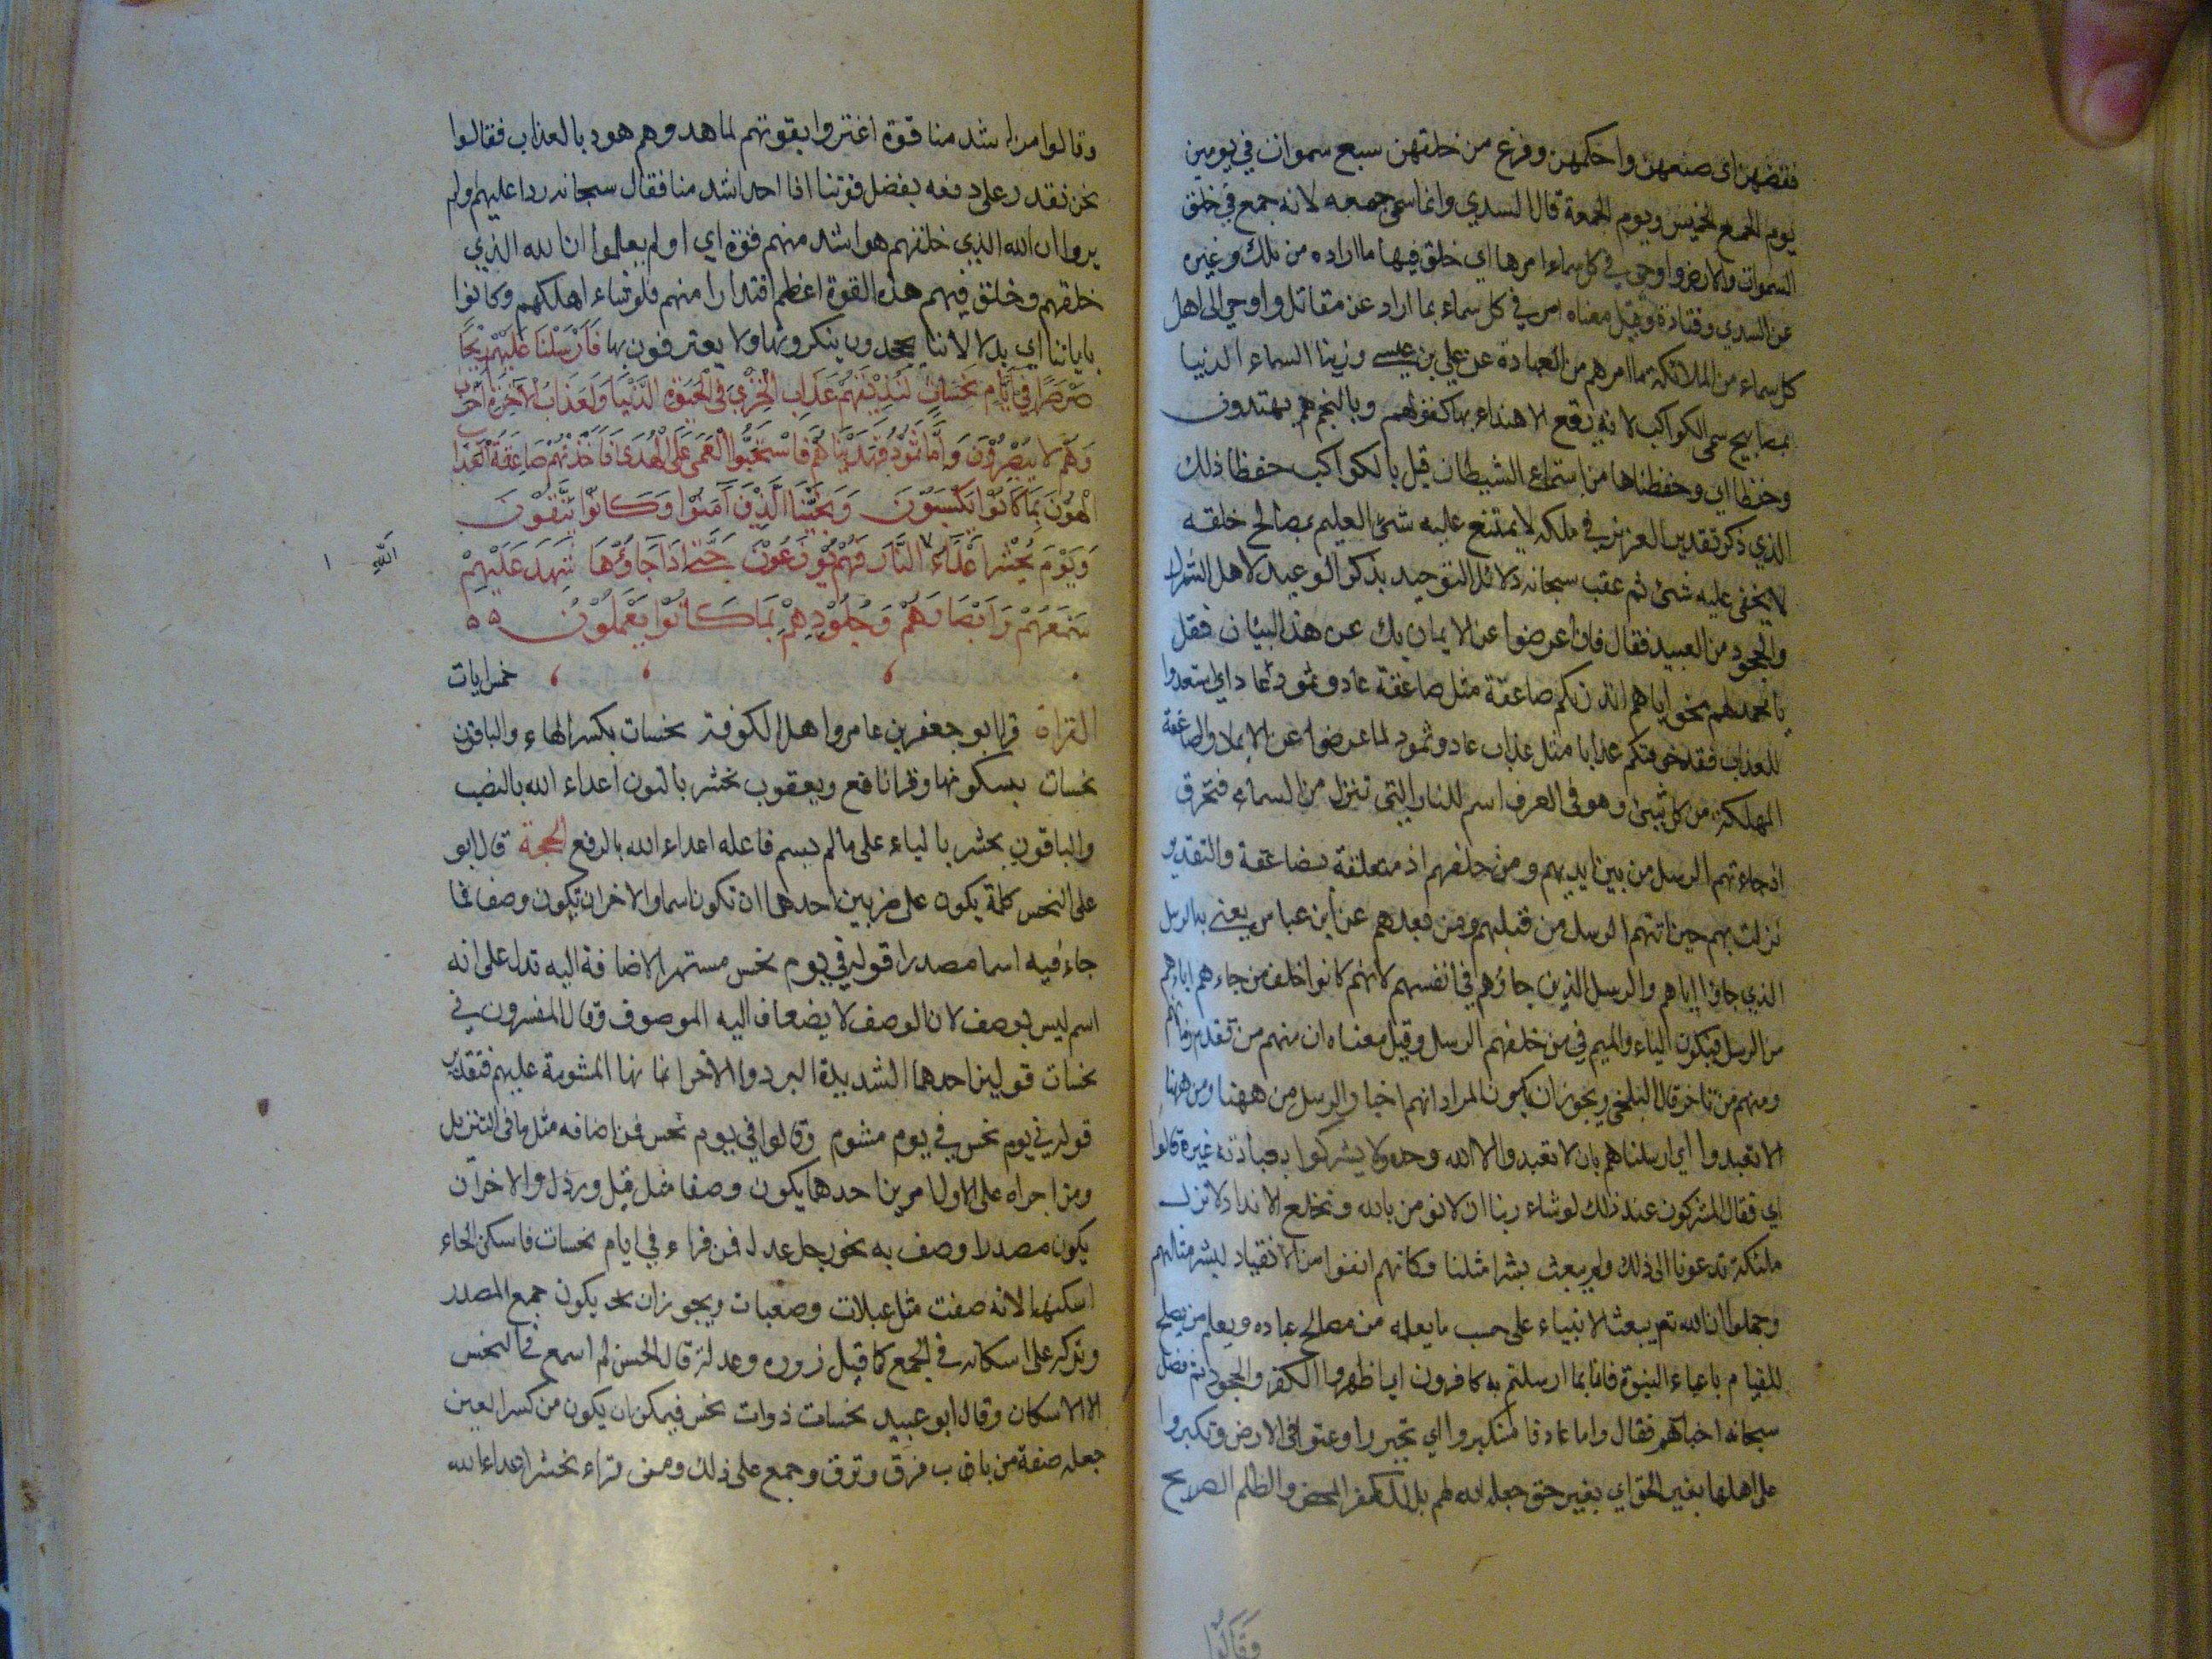 فقضهن اى صنعهن واحكمهن وفرغ من خلقهن سبع سموات في يومين
يوم الخميس ويوم الجمعة قال السدي وانما سمى جمعه لانه جمع في خلق
السموات والارض واوحى في كل سماء امرها اي خلق فيها ما اراده من ملك وغيره
عن السدي وقتادة وقيل معناه امر في كل سماء بما اراد عن مقاتل واوحى الى اهل
كل سماء من الملائكة ما امرهم من العبادة عن علي بن عيسى وزينا السماء الدنيا
بمصابيح سمى الكواكب لانه يقع الاهتداء بها كقوله وبالنجم هم يهتدون
وحفظا اي وحفظناها من استماع الشيطان قيل بالكواكب حفظا ذلك
الذي ذكر تقدير العزيز في ملكه لا يمتنع عليه شئ العليم بمصالح خلقه
لا يخفى عليه شئ ثم عقب سبحانه دلائل التوحيد بذكر الوعيد لاهل الشرك
والجحود من العبيد فقال فان اعرضوا عن الايمان بك عن هذا البيان فقل
يا محمد لهم مخوفا اياهم انذرتكم صاعقة مثل صاعقة عاد وثمود عاد اي استعدوا
للعذاب فقد خوفتكم عذابا مثل عذاب عاد وثمود لما عرضوا عن الايمان والصاعقة
المهلكة من كل شئ وهو فى العرف اسم للنار التي تنزل من السماء فتحرق
اذ جاءتهم الرسل من بين ايديهم ومن خلفهم اذ متعلقة بصاعقة والتقدير
نزلت بهم حين اتتهم الرسل من قبلهم ومن بعدهم عن ابن عباس يعني به الرسل
الذي جاؤا اباهم والرسل الذين جاؤهم في انفسهم لانهم كانوا خلف من جاءهم اباءهم
من الرسل فيكون الهاء والميم في من خلفهم الرسل وقيل معناه ان منهم من تقدم زمانهم
ومنهم من تاخر قال البلخي ويجوز ان يكون المراد انهم اخبار الرسل من ههنا ومن ههنا
الا تعبدوا اي ارسلناهم بان لا تعبدوا الا الله وحده ولا يشركوا بعبادته غيره قالوا
اي فقال المشركون عند ذلك لوشاء ربنا ان لا نومن بالله ونخلع الانداد لانزل
ملئكة تدعونا الى ذلك ولم يبعث بشرا مثلنا وكانهم انفوا من الانقياد لبشر مثلهم
وجهلوا ان الله تم يبعث الانبياء على حسب ما يعلمه من مصالح عباده ويعلم من يصلح
للقيام باعباء النبوة فانا بما ارسلتم به كافرون اي اظهروا الكفر والجحود ثم فصل
سبحانه اخبارهم فقال واما عاد فاستكبروا اي تجبروا وعتوا فى الارض وتكبروا
على اهلها بغير الحق اي بغير حق جعله الله لهم بل للكفر المحض والظلم الصريح
وَقَالُوا
وقالوا من اشد منا قوة اغتروا بقوتهم لما هددهم هود بالعذاب فقالوا
نحن نقدر على دفعه بفضل قوتنا اذا احد اشد منا فقال سبحانه ردا عليهم اولم
يروا ان الله الذي خلقهم هو اشد منهم قوة اي او لم يعلموا ان الله الذي
خلقهم وخلق فيهم هذه القوة اعظم اقتدارا منهم فلو شاء اهلكهم وكانوا
باياتنا اي بدلالاتنا يجحدون ينكرونها ولا يعترفون بها فَاَرْسَلْنَا عَلَيْهِمْ رِيْحًا
صَرْصَرًا فِي اَيَّامٍ نَحِسَاتٍ لِنُذِيْقَهُمْ عَذَابَ الْخِزْيِ فِي الْحَيٰوةِ الدُّنْيَا وَلَعَذَابُ الْآخِرَةِ اَخْزٰى
وَهُمْ لَا يُنْصَرُوْنَ وَاَمَّا ثَمُوْدُ فَهَدَيْنَاهُمْ فَاسْتَحَبُّوا الْعَمَى عَلَى الْهُدَى فَاَخَذَتْهُمْ صَاعِقَةُ الْعَذَابِ
الْهُوْنِ بِمَا كَانُوْا يَكْسِبُوْنَ وَنَجَّيْنَا الَّذِيْنَ آمَنُوْا وَكَانُوْا يَتَّقُوْنَ
وَيَوْمَ يُحْشَرُ اَعْدَاءُ النَّارِ فَهُمْ يُوْزَعُوْنَ حَتّٰى اِذَا جَاؤُهَا شَهِدَ عَلَيْهِمْ
اللّٰهِ ١
سَمْعُهُمْ وَاَبْصَارُهُمْ وَجُلُوْدُهُمْ بِمَا كَانُوْا يَعْمَلُوْنَ ه ه
خمس ايات
القراة قرا ابو جعفر بن عامر واهل الكوفة نحسات بكسر الحاء والباقون
نحسات بسكونها وقرا نافع ويعقوب نحشر بالنون اعداء الله بالنصب
والباقون يحشر بالياء على ما لم يسم فاعله اعداء الله بالرفع الحجة قال ابو
على النحس كلمة يكون على ضربين احدهما ان تكون اسما والاخر ان يكون وصفا فما
جاء فيه اسما مصدرا قوله في يوم نحس مستمر الاضافة اليه تدل على انه
اسم ليس بوصف لان الوصف لا يضاف اليه الموصوف وقال المفسرون في
نحسات قولين احدهما الشديدة البرد والاخر انها المشومة عليهم فتقدير
قوله في يوم نحس في يوم مشوم وقالوا في يوم نحس فمن اضافه مثل ما فى التنزيل
ومن اجراه على الاول امرين احدهما يكون وصفا مثل قيل ورذل والاخر ان
يكون مصدرا وصف به نحو رجل عدل فمن قراء في ايام نحسات فاسكن الحاء
اسكنها لانه صفت مثل عبلات وصعبات ويجوز ان يكون جمع المصدر
وتركه على اسكانه في الجمع كما قيل زوره وعدلة قال الحسن لم اسمع في النحس
الا الاسكان وقال ابو عبيد نحسات ذوات نحس فيمكن ان يكون من كسر العين
جعله صفة من باب فرق وترق وجمع على ذلك ومن قراء نحشر اعداء الله